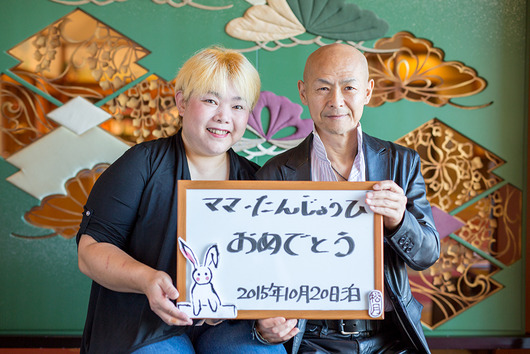 ママ・たんじょうび
おめでとう
2015年10月20日泊
松月